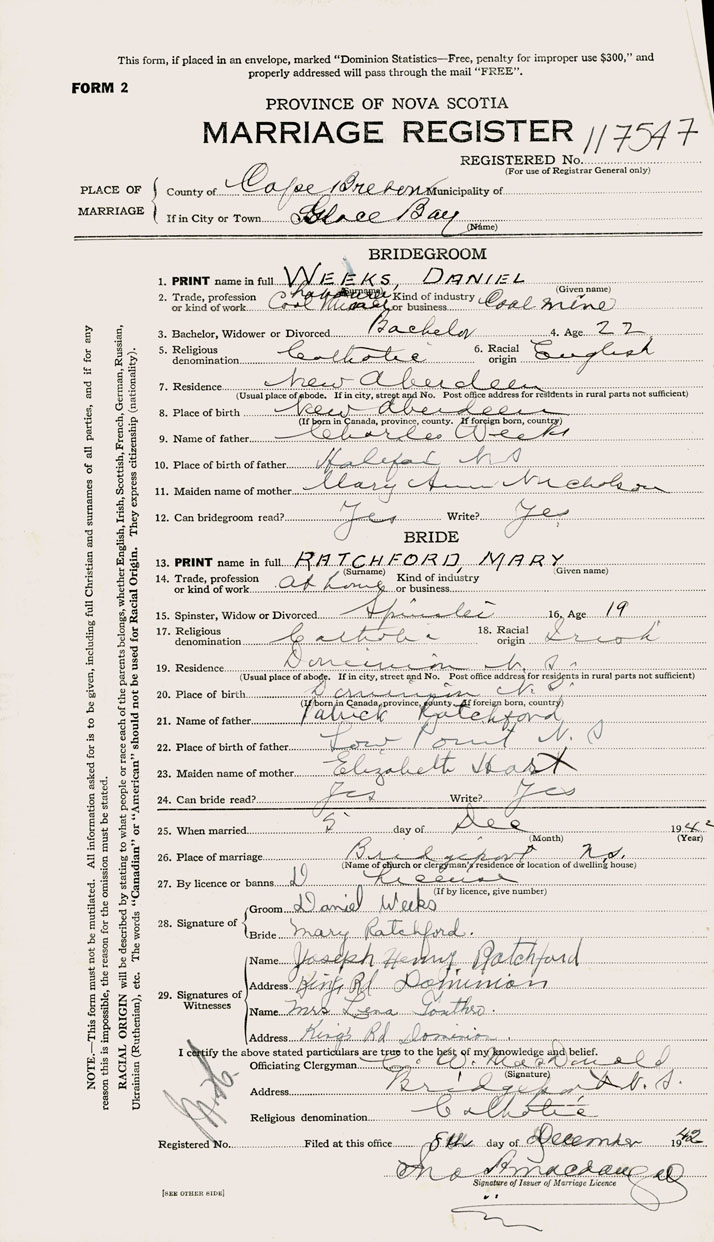 This form, if placed in an envelope, marked "Dominion Statistics—Free, penalty for improper use $300," and
properly addressed will pass through the mail "FREE".
FORM 2
PROVINCE OF NOVA SCOTIA
MARRIAGE REGISTER 117547
REGISTERED No.
(For use of Registrar General only)
PLACE OF MARRIAGE
County of Cape Breton Municipality of
If in City or Town Glace Bay
(Name)
BRIDEGROOM
1. PRINT name in full WEEKS, DANIEL
(Surname) (Given name)
2. Trade, profession or kind of work Coal Kind of industry or business Coal mine
3. Bachelor, Widower or Divorced Bachelor 4. Age 22
5. Religious denomination Catholic 6. Racial origin English
7. Residence New Aberdeen
(Usual place of abode. If in city, street and No. Post office address for residents in rural parts not sufficient)
8. Place of birth New Aberdeen
(If born in Canada, province, county. If foreign born, country)
9. Name of father Charles Weeks
10. Place of birth of father Halifax N S
11. Maiden name of mother Mary Ann Nicholson
12. Can bridegroom read? Yes Write? Yes
BRIDE
13. PRINT name in full RATCHFORD, MARY
(Surname) (Given name)
14. Trade, profession or kind of work at home Kind of industry or business
15. Spinster, Widow or Divorced Spinster 16. Age 19
17. Religious denomination Catholic 18. Racial origin Irish
19. Residence Dominion N. S.
(Usual place of abode. If in city, street and No. Post office address for residents in rural parts not sufficient)
20. Place of birth Dominion N. S.
(If born in Canada, province, county. If foreign born, country)
21. Name of father Patrick Ratchford
22. Place of birth of father Low Point N. S
23. Maiden name of mother Elizabeth Hart
24. Can bride read? Yes Write? Yes
25. When married 5 day of Dec 1942
(Month) (Year)
26. Place of marriage Bridgeport N.S.
(Name of church or clergyman's residence or location of dwelling house)
27. By licence or banns License
(If by licence, give number)
28. Signature of
Groom Daniel Weeks
Bride Mary Ratchford.
29. Signatures of Witnesses
Name Joseph Henry Ratchford
Address King's Rd Dominion
Name Mrs Lena
Address King's Rd Dominion.
I certify the above stated particulars are true to the best of my knowledge and belief.
Officiating Clergyman C. W. MacDonald
(Signature)
Address Bridgeport N. S.
Religious denomination Catholic
Registered No. Filed at this office 8th day of December 1942
Signature of Issuer of Marriage Licence
[SEE OTHER SIDE]
NOTE.—This form must not be mutilated. All information asked for is to be given, including full Christian and surnames of all parties, and if for any
reason this is impossible, the reason for the omission must be stated.
RACIAL ORIGIN will be described by stating to what people or race each of the parents belongs, whether English, Irish, Scottish, French, German, Russian,
Ukrainian (Ruthenian), etc. The words "Canadian" or "American" should not be used for Racial Origin. They express citizenship (nationality).